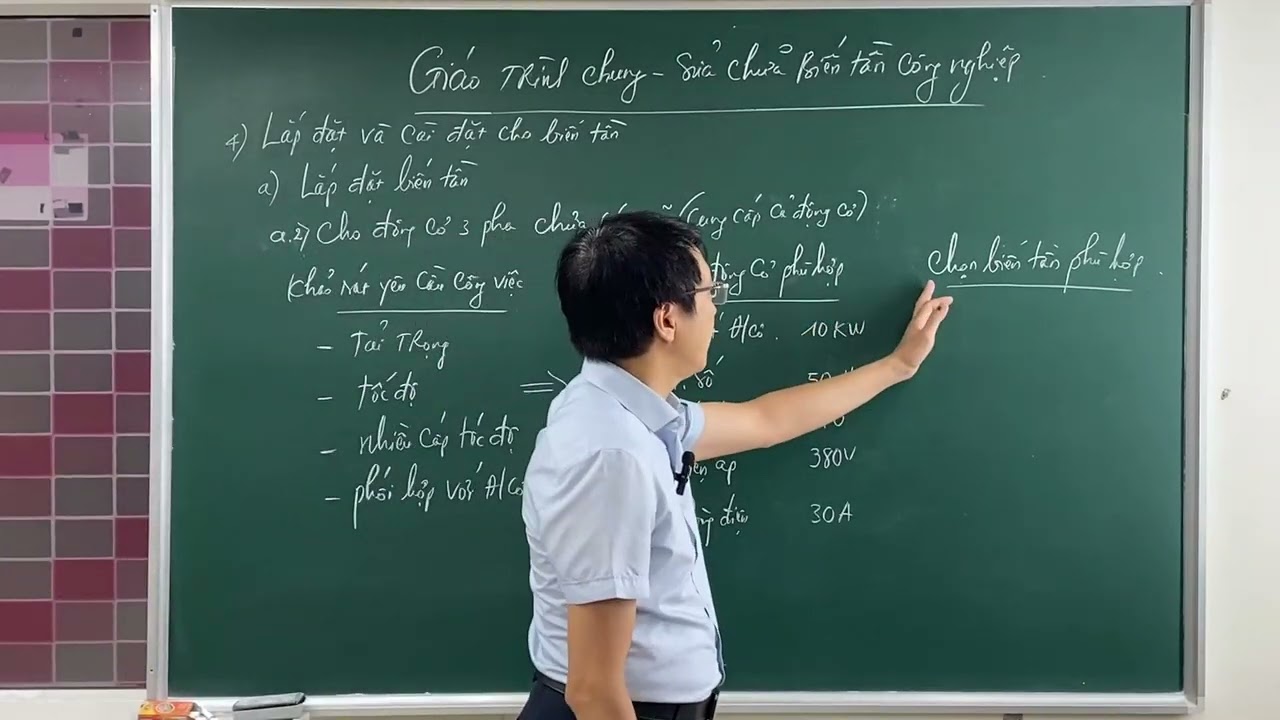 Giáo Trình chung - Sửa chữa Biến tần Công nghiệp
4) Lắp đặt và Cài đặt cho biến tần
a) Lắp đặt biến tần
a.2) Cho động cơ 3 pha chưa (Cung cấp cả động cơ)
Khảo sát yêu cầu Công việc
- Tải Trọng
- tốc độ
- nhiều cấp tốc độ
- phối hợp với Đ/Cơ
=>
động Cơ phù hợp
Đ/Cơ. 10KW
số 50
áp 380V
điện 30A
Chọn biến tần phù hợp.